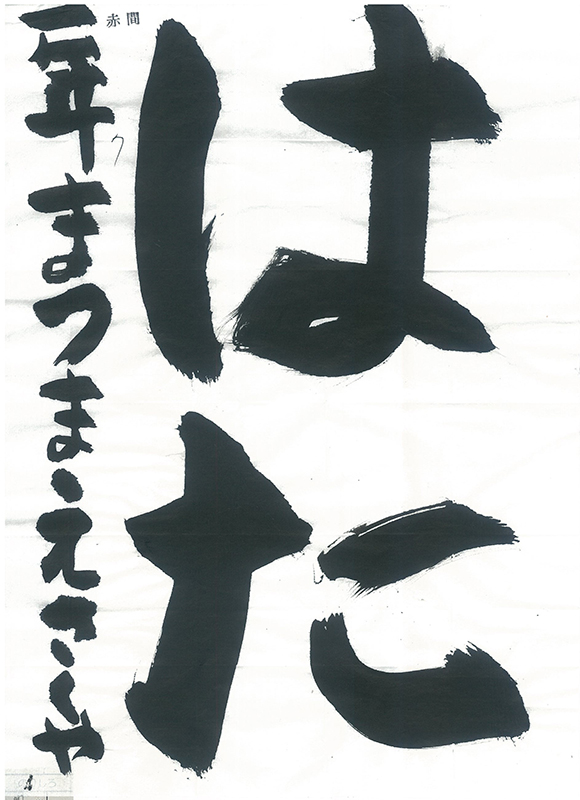 はた
赤間
二年まつまえさくや